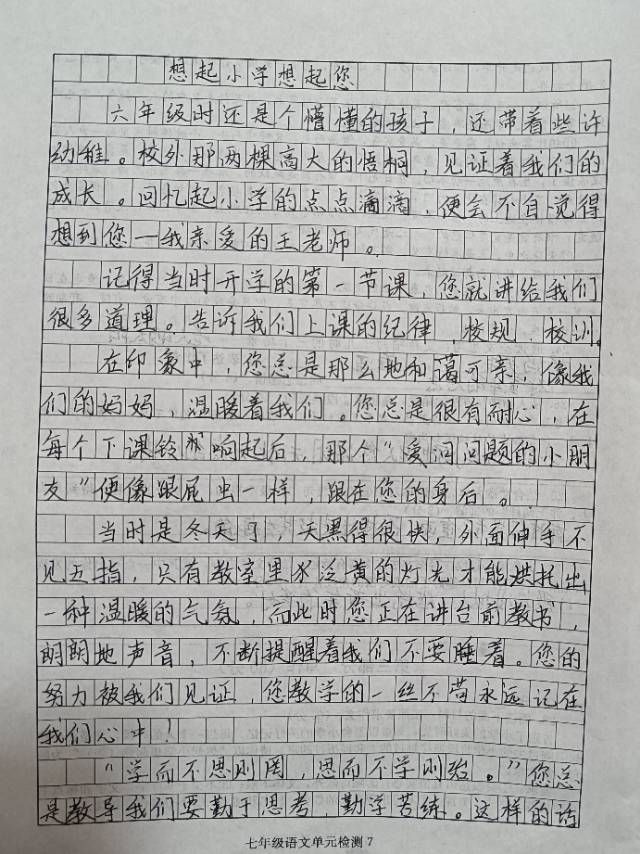 想起小学想起您
六年级时还是个懵懂的孩子,还带着些许
幼稚。校外那两棵高大的梧桐,见证着我们的
成长。回忆起小学的点点滴滴,便会不自觉得
想到您—我亲爱的王老师。
记得当时开学的第一节课,您就讲给我们
很多道理。告诉我们上课的纪律、校规、校训。
在印象中,您总是那么地和蔼可亲,像我
们的妈妈,温暖着我们。您总是很有耐心,在
每个下课铃响起后,那个“爱问问题的小朋
友”便像跟屁虫一样,跟在您的身后。
当时是冬天了,天黑得很快,外面伸手不
见五指,只有教室里泛黄的灯光才能烘托出
一种温暖的气氛,而此时您正在讲台前教书,
朗朗地声音,不断提醒着我们不要睡着。您的
努力被我们见证,您教学的一丝不苟永远记在
我们心中!
“学而不思则罔,思而不学则殆。”您总
是教导我们要勤于思考,勤学苦练。这样的话
七年级语文单元检测7